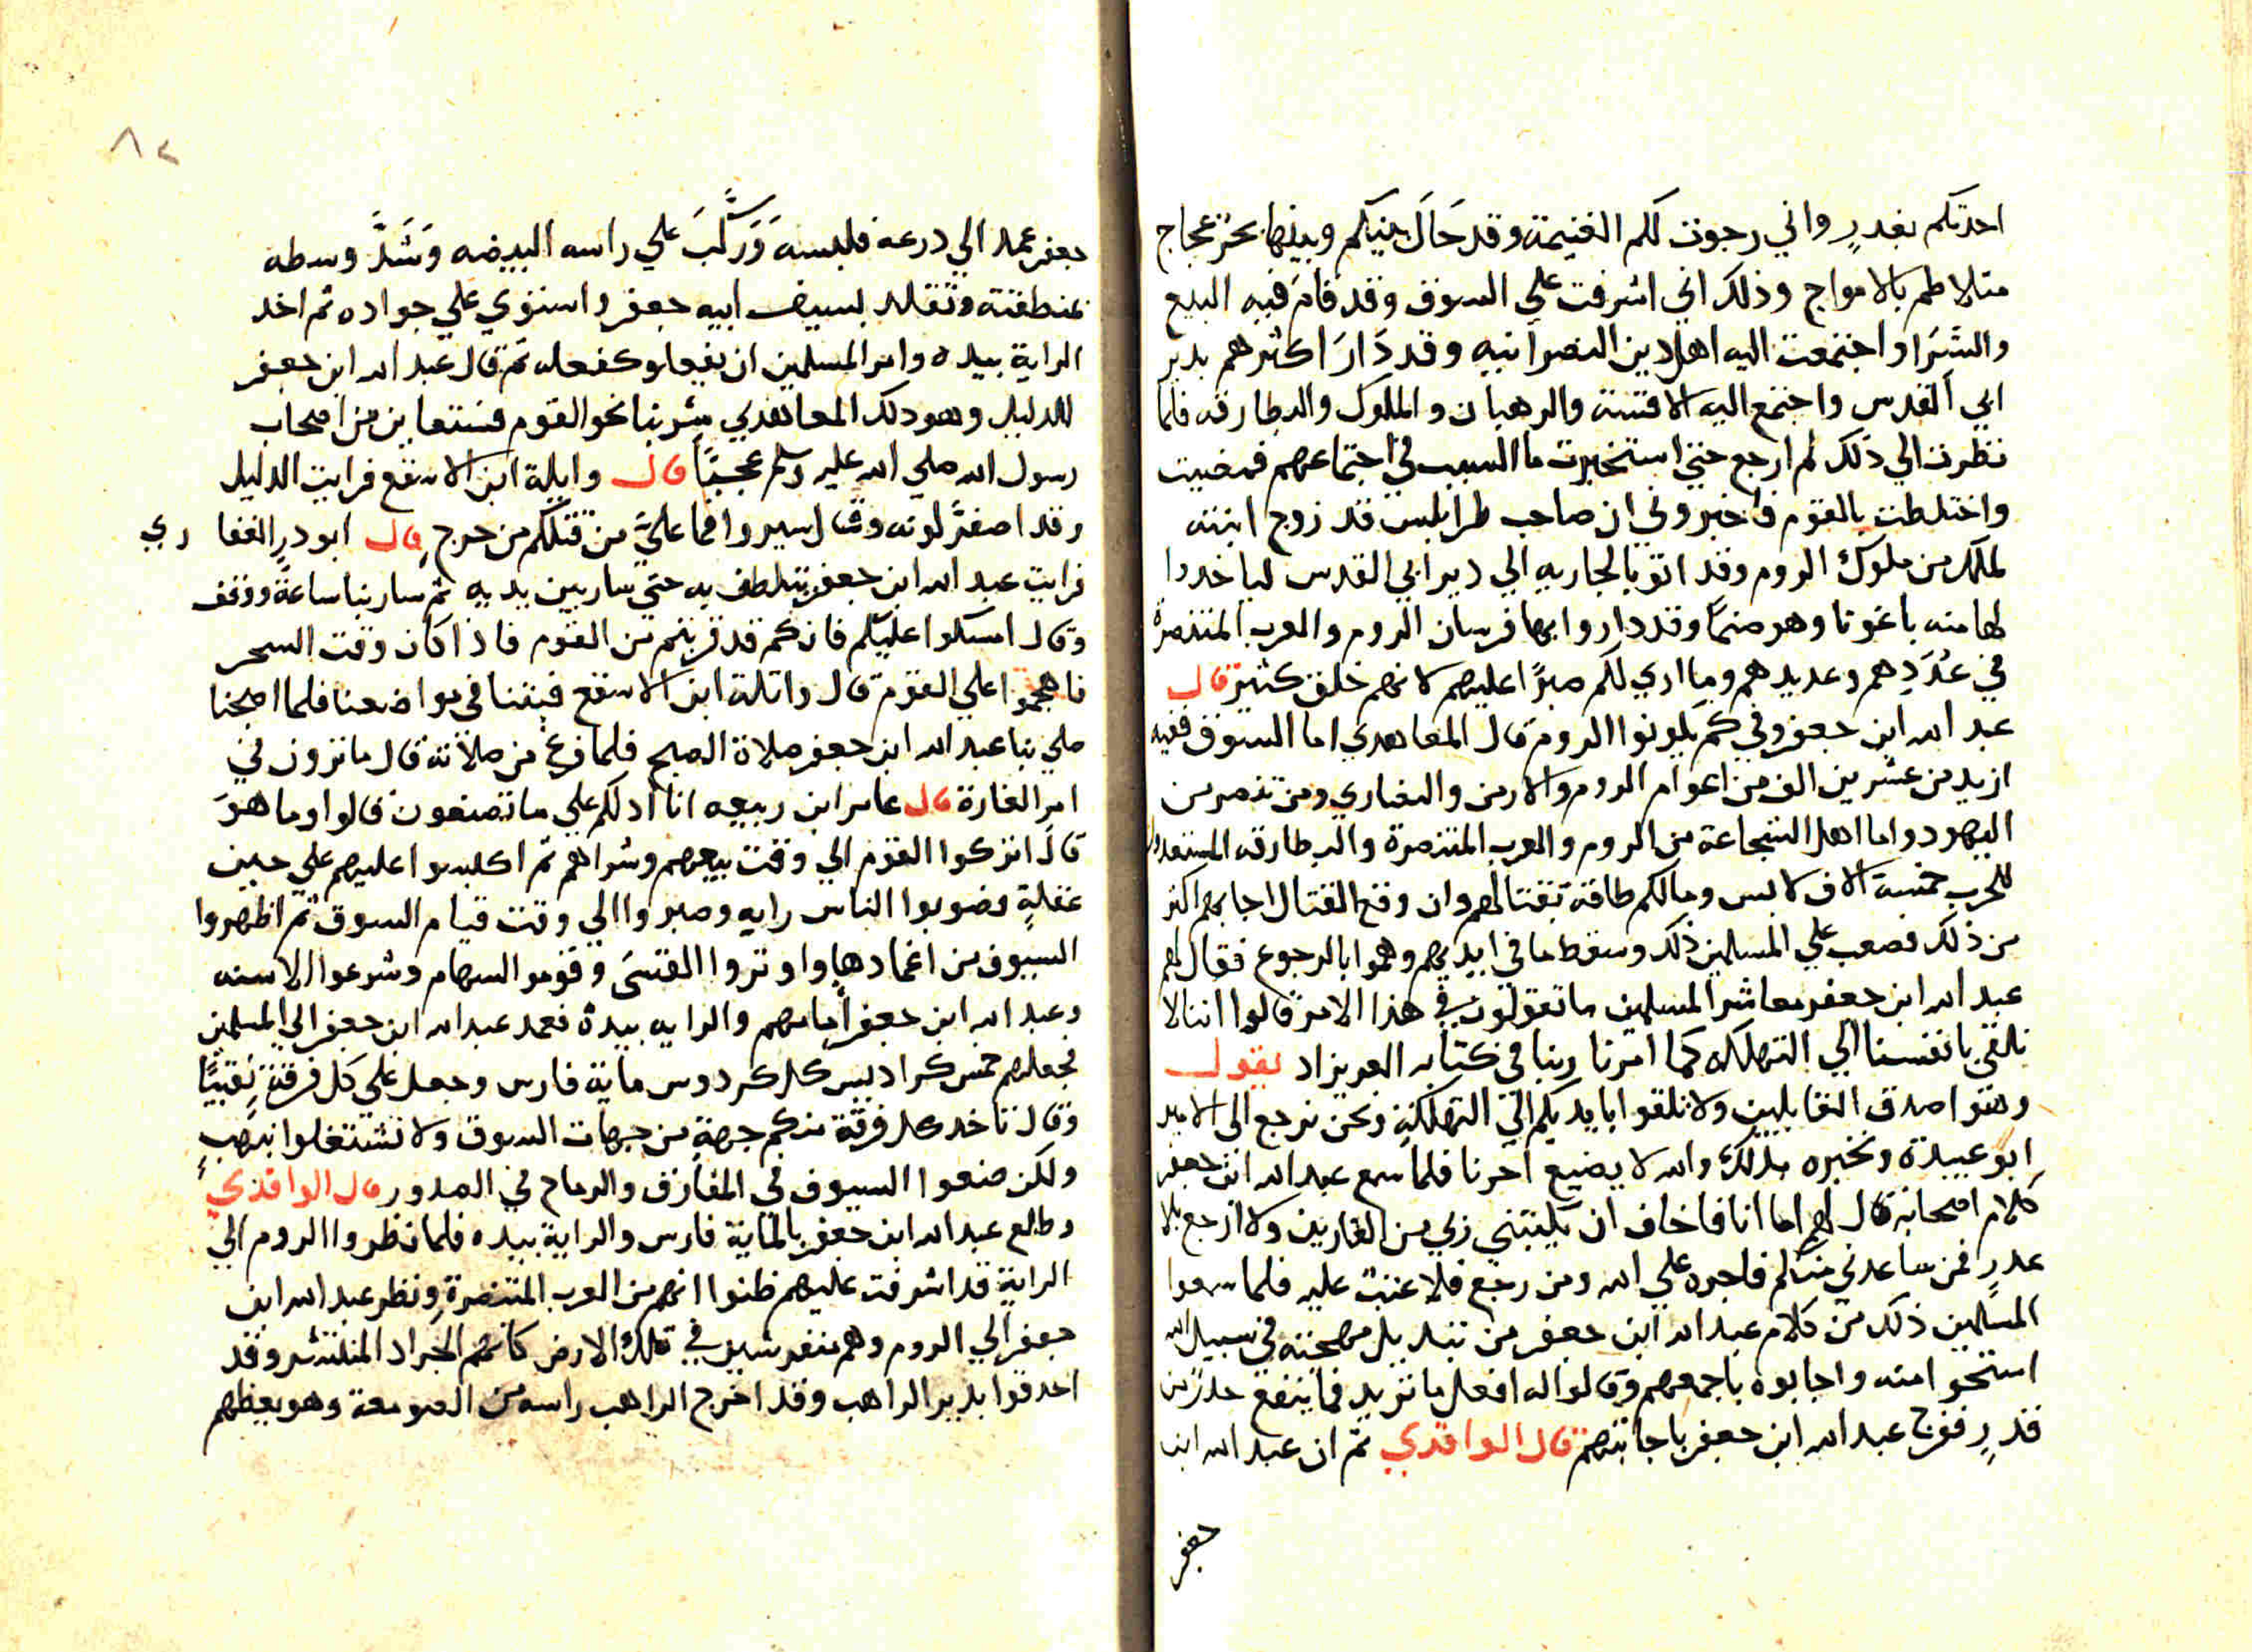 احدثكم بغدرٍ واني رجوت لكم الغنيمة وقد حَالَ بينكم وبينها بحر عجاج
متلاطم بالامواج وذلك اني اشرفت علي السوق وقد قامَ فيه البيع
والشرَا واجتمعت اليه اهل دين النصرانيه وقد دَارَ اكثرهم بدير
ابي القدس واجتمع اليه الاقسة والرهبان والملوك والبطارقه فلما
نظرت الي ذلك لم ارجع حتي استخبرت ما السبب في اجتماعهم فمضيت
واختلطت بالقوم فاخبروني ان صاحب طرابلس قد زوج ابنته
لملك من ملوك الروم وقد اتو بالجاريه الي دير ابي القدس لياخدوا
لها منه باغوتا وهو صنمًا وقد داروا بها فرسان الروم والعرب المتنصرة
في عُدَدِهم وعديدهم وما اري لكم صبرًا عليهم لانهم خلق كثير قال
عبد الله ابن جعفر وفي كم يكونوا الروم قال المعاهدي اما السوق ففيه
ازيد من عشرين الف من اعوام الروم والارمن والنصاري ومن تنصر من
اليهود واما اهل الشجاعة من الروم والعرب المتنصرة والبطارقه المستعدون
للحرب خمسة الاف لابس ومالكم طاقة بقتالهم وان وقع القتال اجابهم اكثر
من ذلك فصعب علي المسلمين ذلك وسقط ما في ايديهم وهموا بالرجوع فقال لهم
عبد الله ابن جعفر معاشر المسلمين ما تقولون في هذا الامر قالوا اننا لا
نلقي بانفسنا الي التهلكه كما امرنا ربنا في كتابه العزيز اد يقول
وهو اصدق القايلين ولا تلقوا بايديكم الي التهلكة ونحن نرجع الى الامير
ابو عبيدة ونخبره بذلك والله لا يضيع اجرنا فلما سمع عبد الله ابن جعفر
كلام اصحابه قال لهم اما انا فاخاف ان يكتبني ربي من الفارين ولا ارجع بلا
عدرٍ فمن ساعدني منكم فاجره علي الله ومن رجع فلا عتب عليه فلما سمعوا
المسلمين ذلك من كلام عبد الله ابن جعفر من تبديل مهجته في سبيل الله
استحوا منه واجابوه باجمعهم وقالوا له افعل ما تريد فما ينفع حدرٌ من
قدرٍ ففرح عبد الله ابن جعفر باجابتهم قال الواقدي ثم ان عبد الله ابن
جعفر
٨٢
جعفر عمد الي درعه فلبسه وَرَكَّبَ علي راسه البيضه وَشَدَّ وسطه
بمنطقته وتقلد بسيف ابيه جعفر واستوي علي جواده ثم اخد
الراية بيده وامر المسلمين ان يفعلو كفعله ثم قال عبد الله ابن جعفر
للدليل وهو دلك المعاهدي سِر بنا نحو القوم فستعاين من اصحاب
رسول الله صلي الله عليه وسلم عجبًا قال وايلة ابن الاسقع فرايت الدليل
وقد اصفرَّ لونه وقال سيروا فما عليَّ من قتلكم من حرج قال ابو در الغفاري
فرايت عبد الله ابن جعفر يتلطف به حتي سار بين يديه ثم سار بنا ساعةً ووقف
وقال امسكوا عليكم فانكم قد قربتم من القوم فاذا كان وقت السحر
فاهجموا علي القوم قال واتلة ابن الاسقع فبتنا في مواضعنا فلما اصبحنا
صلي بنا عبد الله ابن جعفر صلاة الصبح فلما فرغ من صلاته قال ما ترون في
امر الغارة قال عامر ابن ربيعه انا ادلكم علي ما تصنعون قالوا وما هوَ
قال اتركوا القوم الي وقت بيعهم وشراهم ثم اكبسوا عليهم علي حين
غفلةٍ فصوبوا الناس رايه وصبروا الي وقت قيام السوق ثم اظهروا
السيوف من اغمادها واوتروا القسي وقومو السهام وشرعوا الاسنه
وعبد الله ابن جعفر أمامهم والرايه بيدهُ فعمد عبد الله ابن جعفر الي المسلمين
فجعلهم خمس كراديس كل كردوس ماية فارس وجعل علي كل فرقة نقيبًا
وقال تاخد كل فرقة منكم جهةٍ من جهات السوق ولا تشتغلوا بنهبٍ
ولكن ضعوا السيوف في المفارق والرماح في الصدور قال الواقدي
وطلع عبد الله ابن جعفر بالماية فارس والراية بيده فلما نظروا الروم الي
الراية قد اشرفت عليهم ظنوا انهم من العرب المتنصرة ونظر عبد الله ابن
جعفر الي الروم وهم منفرشين في تلك الارض كانهم الجراد المنتشر وقد
احدقوا بدير الراهب وقد اخرج الراهب راسه من الصومعة وهو يعظهم